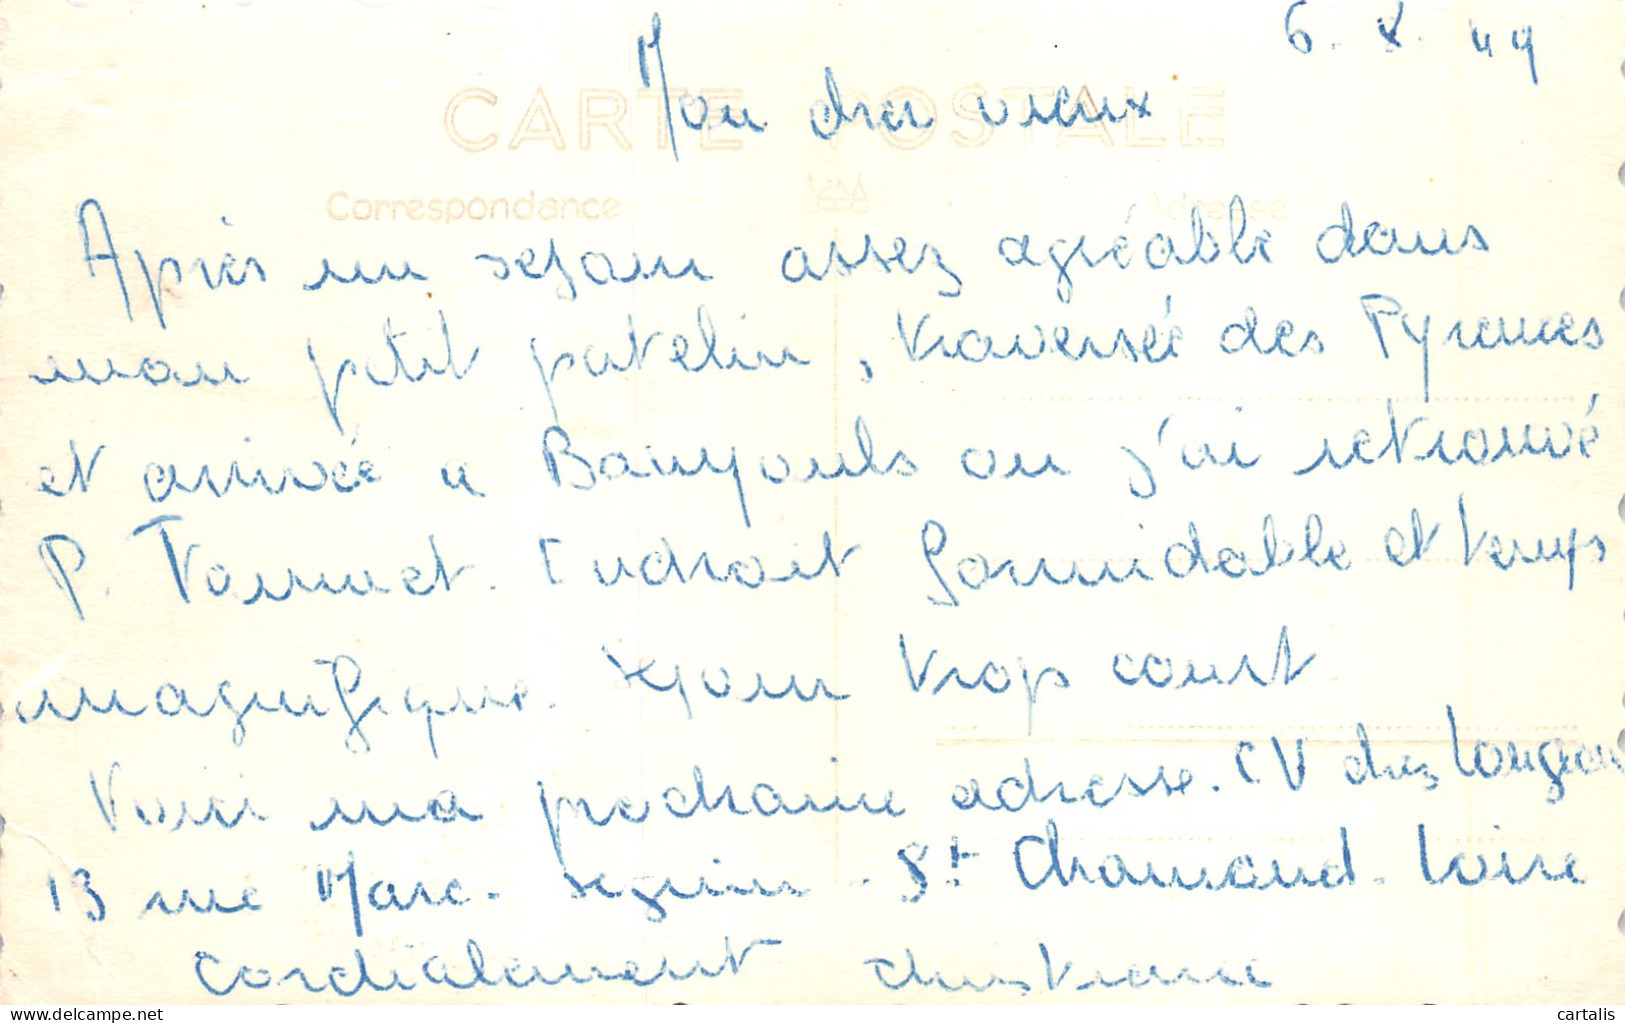 6. X. 49
Mon cher vieux
CARTE POSTALE
Correspondance
Adresse
Après un sejour assez agréable dans
mon petit patelin, traversée des Pyrenees
et arrivée a Banyouls ou j'ai retrouvé
P. Endroit formidable et temps
magnifique. Sejour trop court.
Voici ma prochaine adresse. CV chez
13 rue Marc. Seguin - St Chamond. Loire
Cordialement Christiane
delcampe.net
cartalis